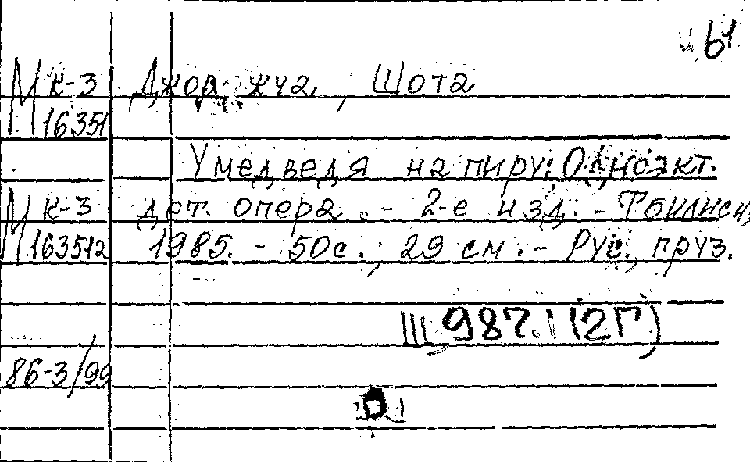 б1
МК-3 Джор жуа, Шота
М 16351
У медведя на пиру: Одноакт.
МК-3 дет. опера. - 2-е изд. - Тбилиси,
М 163512 1985. - 50с.; 29 см. - Рус., груз.
III 987. 1 (2Г)
86-3/99